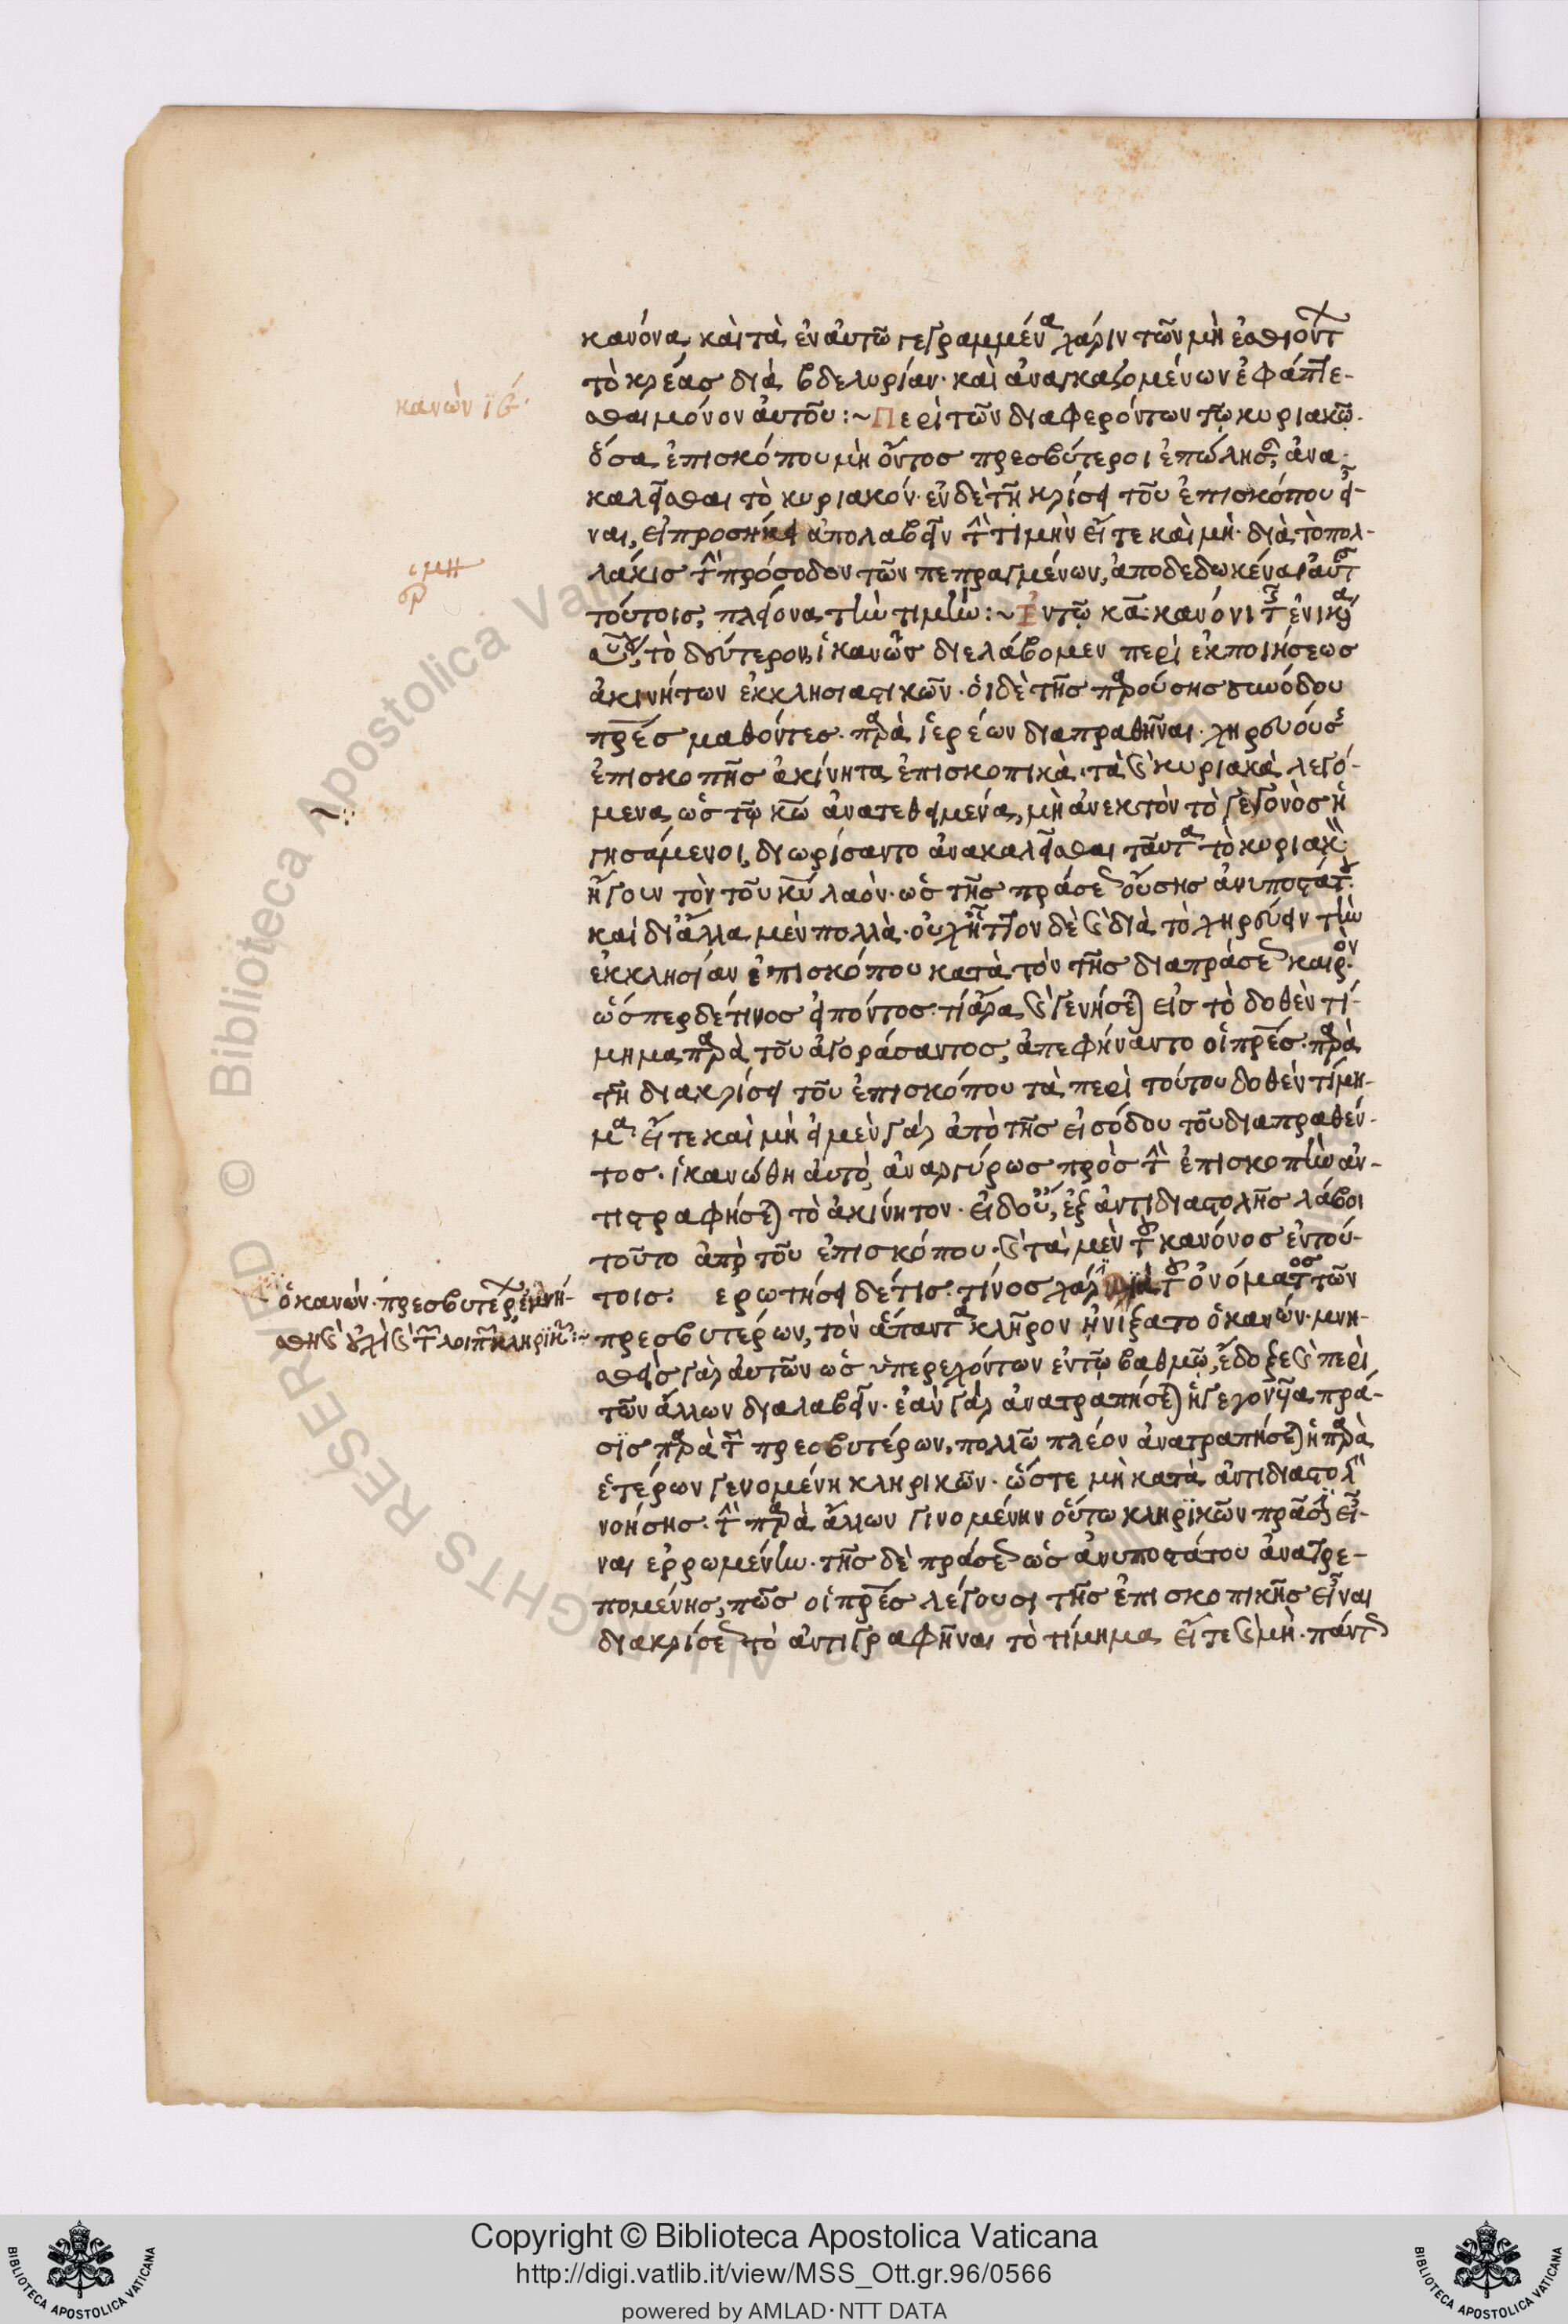 κανόνα, καὶ τὰ ἐν αὐτῶ γεγραμμένα χάριν τῶν μὴ ἐσθιόντων
τὸ κρέας διὰ βδελυρίαν· καὶ ἀναγκαζομένων ἐφάπτε-
κανὼν ιε΄
σθαι μόνον αὐτοῦ :~ Περὶ τῶν διαφερόντων τῷ κυριακῷ.
ὅσα ἐπισκόπου μὴ ὄντος πρεσβύτεροι ἐπώλησαν, ἀνα-
καλεῖσθαι τὸ κυριακόν· ἐν δὲ τῆ κρίσει τοῦ ἐπισκόπου εἶ-
ναι, εἰ προσήκει ἀπολαβεῖν τὴν τιμὴν εἴτε καὶ μή· διὰ τὸ πολ-
λάκις τὴν πρόσοδον τῶν πεπραγμένων, ἀποδεδωκέναι αὐτοῖς
τούτοις, πλείονα τὴν τιμήν :~ Ἐν τῷ κα΄ κανόνι τῆς ἐν
τὸ δεύτερον, ἱκανῶς διελάβομεν περὶ ἐκποιήσεως
ἀκινήτων ἐκκλησιαστικῶν· οἱ δὲ τῆς παρούσης συνόδου
πρες μαθόντες παρὰ ἱερέων διαπραθῆναι χηρευούσης
ἐπισκοπῆς ἀκίνητα ἐπισκοπικὰ, τὰ καὶ κυριακὰ λεγό-
μενα, ὡς τῷ κω ἀνατεθειμένα, μὴ ἀνεκτὸν τὸ γεγονὸς ἡ
γησάμενοι, διωρίσαντο ἀνακαλεῖσθαι ταῦτα τὸ κυριακὸν
ἤγουν τὸν τοῦ κυ λαόν· ὡς τῆς πράσεως οὔσης ἀνυποστάτου·
καὶ δι' ἄλλα μὲν πολλὰ· οὐχ ἧττον δὲ καὶ διὰ τὸ χηρεύειν τὴν
ἐκκλησίαν ἐπισκόπου κατὰ τὸν τῆς διαπράσεως καιρόν·
ὥσπερ δέ τινος εἰπόντος· τί ἄρα καὶ γενήσεται εἰς τὸ δοθὲν τί-
μημα παρὰ τοῦ ἀγοράσαντος, ἀπεφήναντο οἱ πρες παρὰ
τῆ διακρίσει τοῦ ἐπισκόπου τὰ περὶ τούτου δοθὲν τίμη-
μα· εἴτε καὶ μὴ εἰ μὲν γὰρ ἀπὸ τῆς εἰσόδου τοῦ διαπραθέν-
τος· ἱκανώθη αὐτὸ, ἀναργύρως πρὸς τὴν ἐπισκοπὴν ἀν-
τιστραφήσεται τὸ ἀκίνητον· εἰ δ' οὖν, ἐξ ἀντιδιαστολῆς λάβοι
τοῦτο ἀπὸ τοῦ ἐπισκόπου· καὶ τὰ μὲν τοῦ κανόνος ἐν τού-
τοις. ἐρωτήσει δέ τις· τίνος χάριν διὰ τοῦ ὀνόματος τῶν
ὁ κανὼν πρεσβυτέρων ἐμνή-
σθη καὶ οὐχὶ καὶ τῶν λοιπῶν κληρικῶν :~
πρεσβυτέρων, τὸν ἅπαντα κλῆρον ἠνίξατο ὁ κανών· μνη-
σθεὶς γὰρ αὐτῶν ὡς ὑπερεχόντων ἐν τῷ βαθμῷ, ἔδοξε καὶ περὶ
τῶν ἄλλων διαλαβεῖν· ἐὰν γὰρ ἀνατραπήσεται ἡ γεγονυῖα πρά-
σϊς παρὰ τῶν πρεσβυτέρων, πολλῶ πλέον ἀνατραπήσεται ἡ παρὰ
ἑτέρων γενομένη κληρικῶν· ὥστε μὴ κατὰ ἀντιδιαστολὴν
νοήσης· τὴν παρὰ ἄλλων γινομένην οὕτω κληρϊκῶν πρᾶσιν εἶ-
ναι ἐρρωμένην· τῆς δὲ πράσεως ὡς ἀνυποστάτου ἀνατρε-
πομένης, πῶς οἱ πρες λέγουσι τῆς ἐπισκοπικῆς εἶναι
διακρίσεως τὸ ἀντιγραφῆναι τὸ τίμημα εἴτε καὶ μή· πάντως
Copyright © Biblioteca Apostolica Vaticana
http://digi.vatlib.it/view/MSS_Ott.gr.96/0566
powered by AMLAD·NTT DATA
BIBLIOTECA APOSTOLICA VATICANA
BIBLIOTECA APOSTOLICA VATICANA